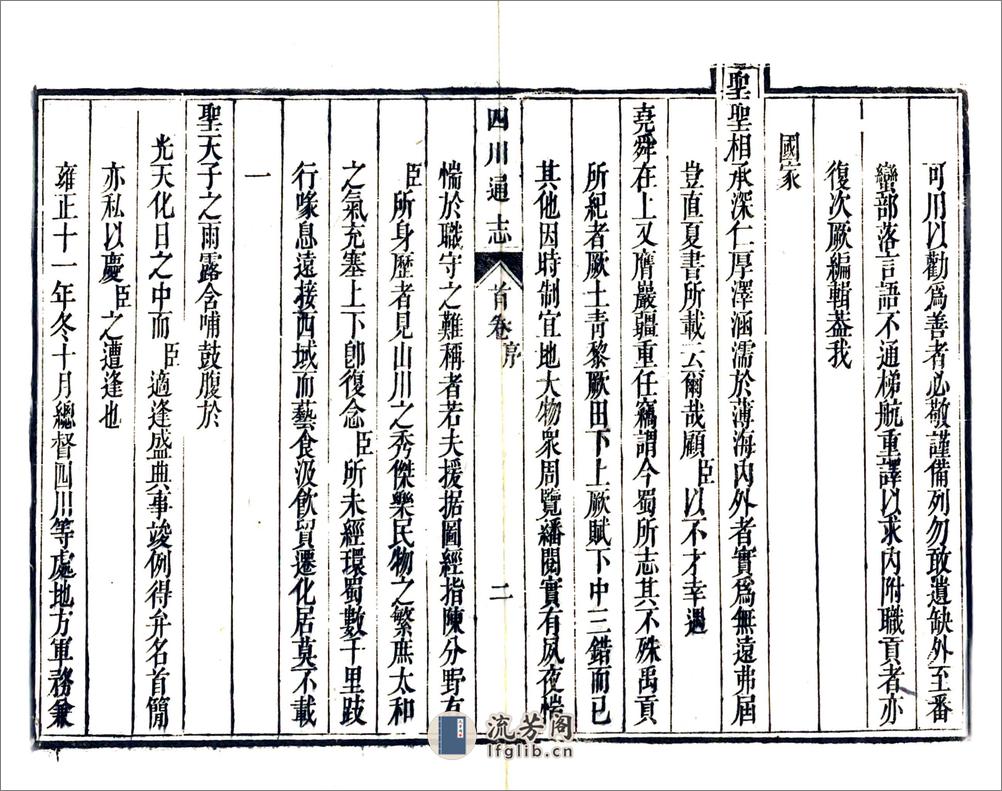 可用以勸為善者必敬謹備列勿敢遺缺外至番
蠻部落言語不通梯航重譯以求內附職貢者亦
復次厥編輯葢我
國家
聖聖相承深仁厚澤涵濡於薄海內外者實為無遠弗屆
豈直夏書所載云爾哉顧臣以不才幸遇
堯舜在上又膺嚴疆重任竊謂今蜀所志其不殊禹貢
所紀者厥土青黎厥田下上厥賦下中三錯而已
其他因時制宜地大物眾周覽繙閱實有夙夜惴
四川通志 首卷 序 二
惴於職守之難稱者若夫援据圖經指陳分野有
臣所身歷者見山川之秀傑樂民物之繁庶太和
之氣充塞上下卽復念臣所未經環蜀數千里跂
行喙息遠接西域而藝食汲飲貿遷化居莫不載
一
聖天子之雨露含哺鼓腹於
光天化日之中而臣適逢盛典事竣例得弁名首簡
亦私以慶臣之遭逢也
雍正十一年冬十月總督四川等處地方軍務兼
流芳閣
lfglib.cn